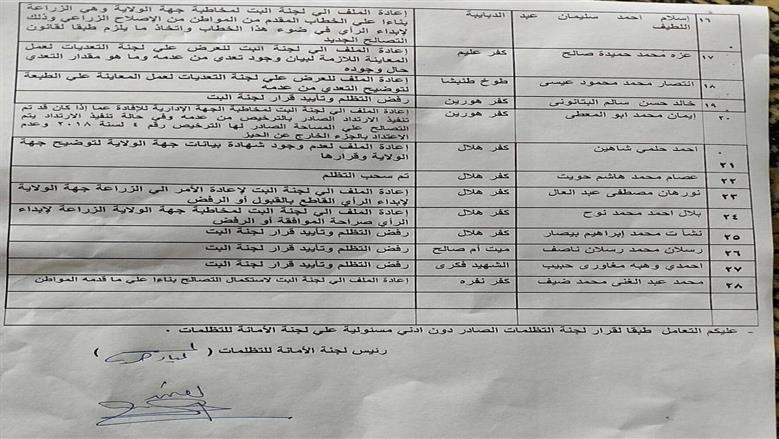 ١٦ إسلام احمد سليمان عبد اللطيف الدبايبة إعادة الملف الي لجنة البت لمخاطبة جهة الولاية وهي الزراعة
بناءا علي الخطاب المقدم من المواطن من الإصلاح الزراعي وذلك
لإبداء الرأي في ضوء هذا الخطاب واتخاذ ما يلزم طبقا لقانون
التصالح الجديد
١٧ عزه محمد حميدة صالح كفر عليم إعادة الملف الي لجنة البت للعرض علي لجنة التعديات لعمل
المعاينة اللازمة لبيان وجود تعدي من عدمه وما هو مقدار التعدي
حال وجوده
١٨ انتصار محمد محمود عيسى طوخ طنبشا إعادة الملف للعرض علي لجنة التعديات لعمل المعاينة علي الطبيعة
لتوضيح التعدي من عدمه
١٩ خالد حسن سالم البتانوني كفر هورين رفض التظلم وتأييد قرار لجنة البت
٢٠ إيمان محمد ابو المعطي كفر هورين إعادة الملف الي لجنة البت لمخاطبة الجهة الإدارية للإفادة عما إذا كان قد تم
تنفيذ الارتداد الصادر بالترخيص من عدمه وفي حالة تنفيذ الارتداد يتم
التصالح علي المساحة الصادر لها الترخيص رقم ٤ لسنة ٢٠١٨ وعدم
الاعتداد بالجزء الخارج عن الحيز
٢١ احمد حلمي شاهين كفر هلال إعادة الملف لعدم وجود شهادة بيانات جهة الولاية لتوضيح جهة
الولاية وقرارها
٢٢ عصام محمد هاشم حويت كفر هلال تم سحب التظلم
٢٣ نورهان مصطفى عبد العال كفر هلال إعادة الملف الي لجنة البت لإعادة الأمر الي الزراعة جهة الولاية
لإبداء الرأي القاطع بالقبول أو الرفض
٢٤ بلال احمد محمد نوح كفر هلال إعادة الملف الي لجنة البت لمخاطبة جهة الولاية الزراعة لإبداء
الرأي صراحة الموافقة أو الرفض
٢٥ نشأت محمد إبراهيم بيصار كفر هلال رفض التظلم وتأييد قرار لجنة البت
٢٦ رسلان محمد رسلان ناصف ميت أم صالح رفض التظلم وتأييد قرار لجنة البت
٢٧ احمدي وهبه مغاورى حبيب الشهيد فكرى رفض التظلم وتأييد قرار لجنة البت
٢٨ محمد عبد الغنى محمد ضيف كفر نفره إعادة الملف الي لجنة البت لاستكمال التصالح بناءا علي ما قدمه المواطن
- عليكم التعامل طبقا لقرار لجنة التظلمات الصادر دون ادني مسئولية علي لجنة الأمانة للتظلمات .
رئيس لجنة الأمانة للتظلمات ( )